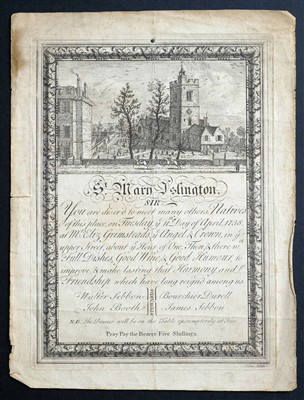 St. Mary Islington.
SIR
You are desir'd to meet many others, Natives
of this place, on Tuesday ye 11th Day of April, 1738
at Mrs. Eliz. Grimsteads, ye Angel & Crown, in ye
upper Street, about ye Hour of One; Then, & there wth
Full Dishes, Good Wine, & Good Humour, to
improve & make lasting that Harmony, and
Friendship which have long reigned among us
Walter Sebbon
John Booth
Bourchier Durell
James Sebbon
STEWARDS
N.B. The Dinner will be on the Table peremptorily at Two.
Pray Pay the Bearer Five Shillings